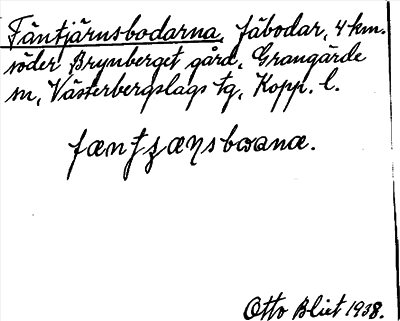 Fäntjärnsbodarna, fäbodar, 4 km.
söder Brynberget gård, Grangärde
sn, Västerbergslags tg, Kopp. l.
fæntʒæɳsbωana.
Otto Blixt 1938.